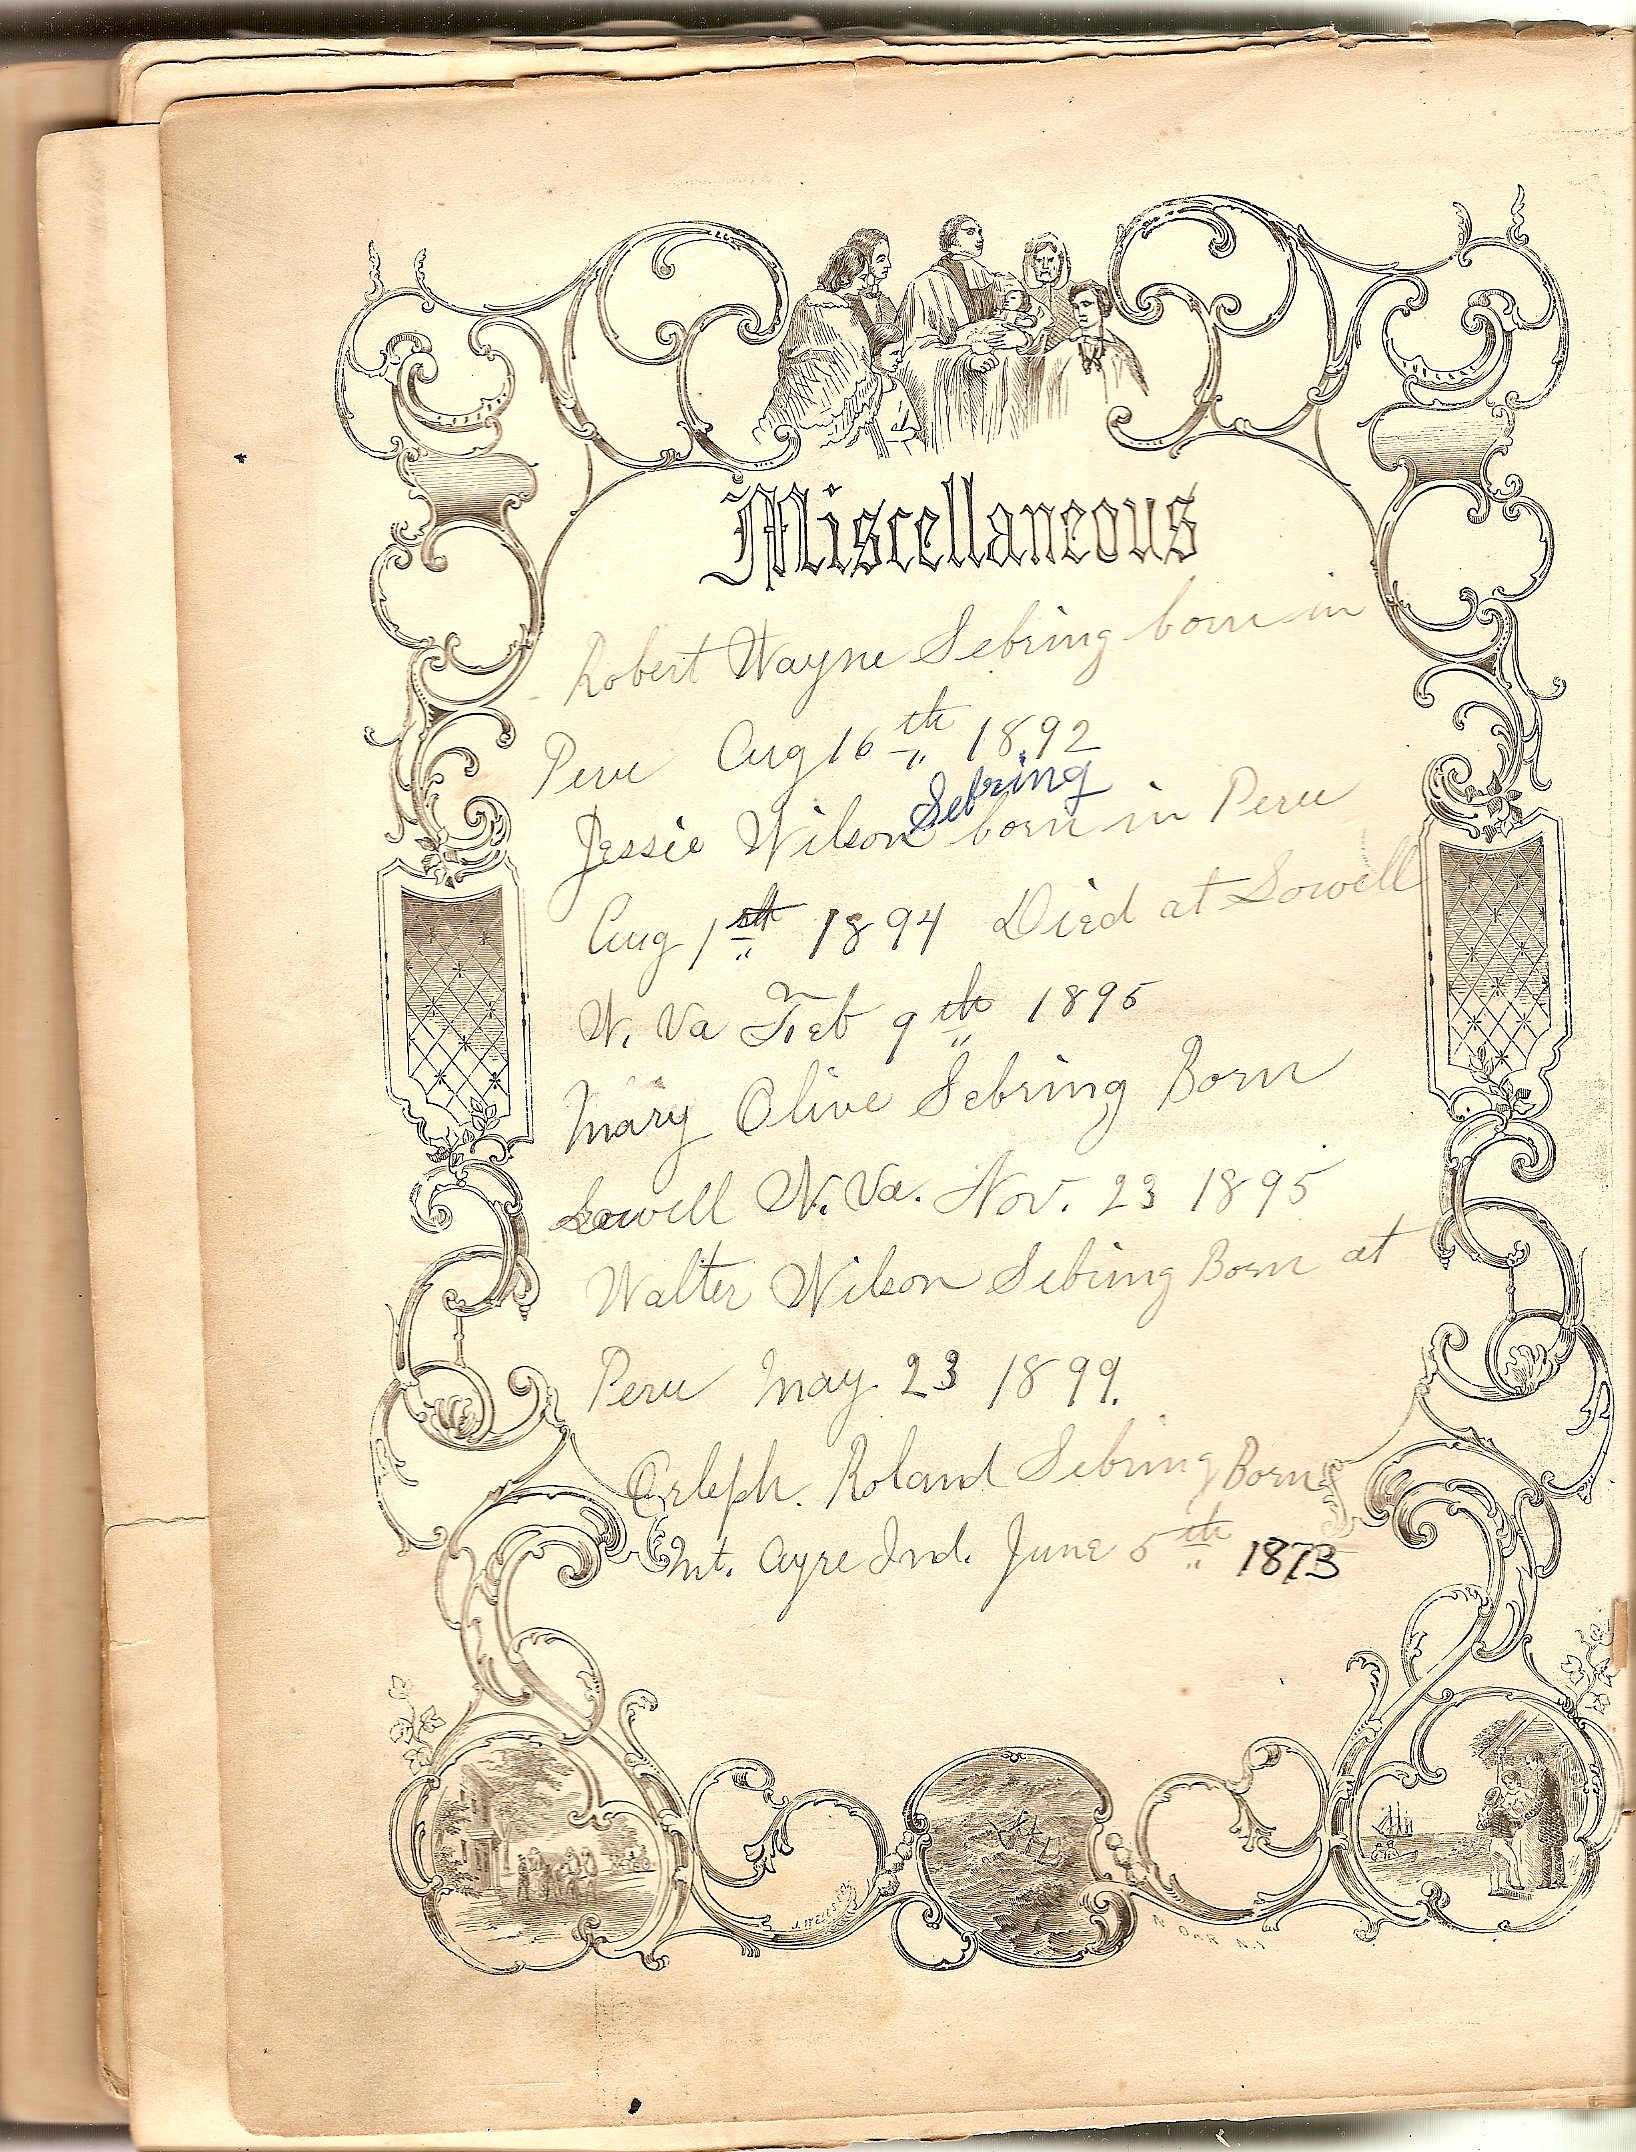 Miscellaneous
Robert Wayne Sebring born in
Peru Aug 16th 1892
Sebring
Jessie Wilson born in Peru
Aug 1st 1894 Died at Lowell
W. Va Feb 9th 1895
Mary Olive Sebring Born
Lowell W. Va. Nov. 23 1895
Walter Wilson Sebring Born at
Peru May 23 1899.
Orleph. Roland Sebring Born
Mt. Ayre Ind. June 5th 1873
N ORR N.Y